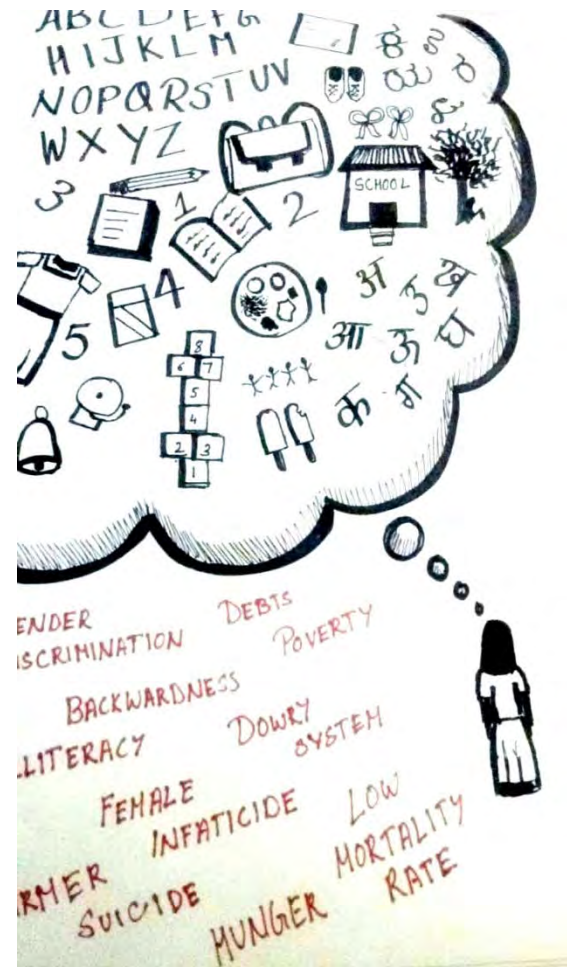 ABCDEFG
HIJKLM
NOPQRSTUV
WXYZ
SCHOOL
3
1
2
4
5
अ उ ख
आ ऊ घ
क ग
8
6 7
5
4
2 3
1
ENDER
ISCRIMINATION
DEBTS
POVERTY
BACKWARDNESS
LLITERACY
DOWRY
SYSTEM
FEMALE
INFATICIDE
LOW
MORTALITY
RATE
RMER
SUICIDE
HUNGER